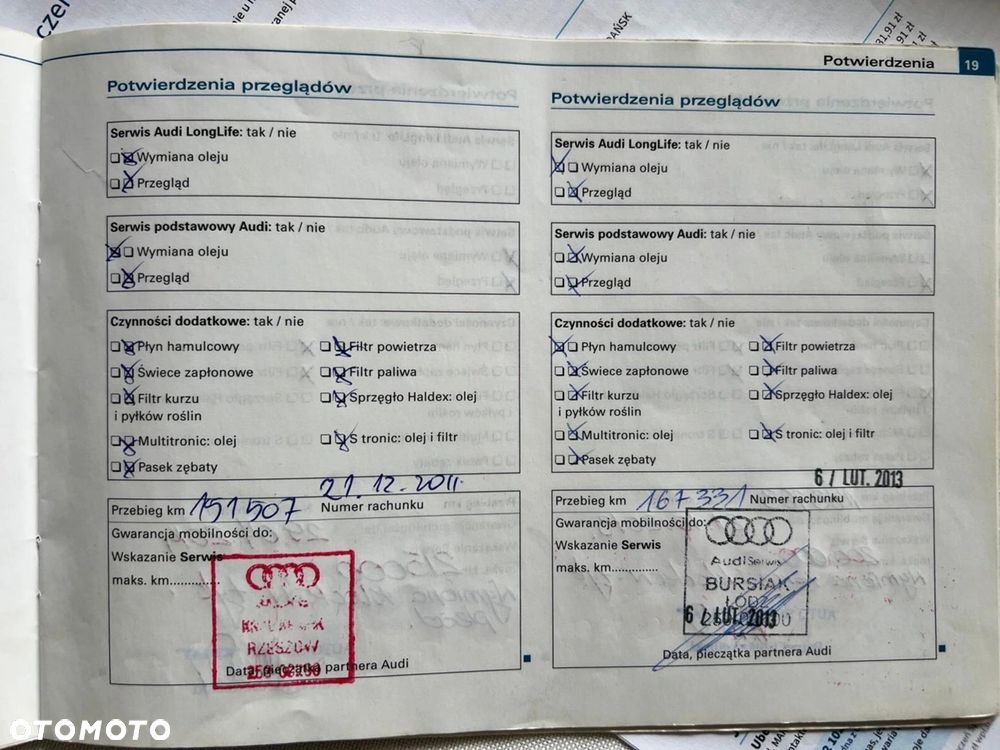 GDAŃSK
31,91 zł
91 zł
zł
Potwierdzenia 19
Potwierdzenia przeglądów
Serwis Audi LongLife: tak / nie
Wymiana oleju
Przegląd
Serwis podstawowy Audi: tak / nie
Wymiana oleju
Przegląd
Czynności dodatkowe: tak / nie
Płyn hamulcowy
Filtr powietrza
Świece zapłonowe
Filtr paliwa
Filtr kurzu
i pyłków roślin
Sprzęgło Haldex: olej
Multitronic: olej
S tronic: olej i filtr
Pasek zębaty
21.12.2011
Przebieg km 151507 Numer rachunku
Gwarancja mobilności do:
Wskazanie Serwis
maks. km.............
RZESZÓW
Data, pieczątka partnera Audi
Potwierdzenia przeglądów
Serwis Audi LongLife: tak / nie
Wymiana oleju
Przegląd
Serwis podstawowy Audi: tak / nie
Wymiana oleju
Przegląd
Czynności dodatkowe: tak / nie
Płyn hamulcowy
Filtr powietrza
Świece zapłonowe
Filtr paliwa
Filtr kurzu
i pyłków roślin
Sprzęgło Haldex: olej
Multitronic: olej
S tronic: olej i filtr
Pasek zębaty
6 / LUT. 2013
Przebieg km 167331 Numer rachunku
Gwarancja mobilności do:
Wskazanie Serwis
maks. km.............
Audi Serwis
BURSIAK
ŁÓDŹ
6 / LUT. 2013
Data, pieczątka partnera Audi
OTOMOTO